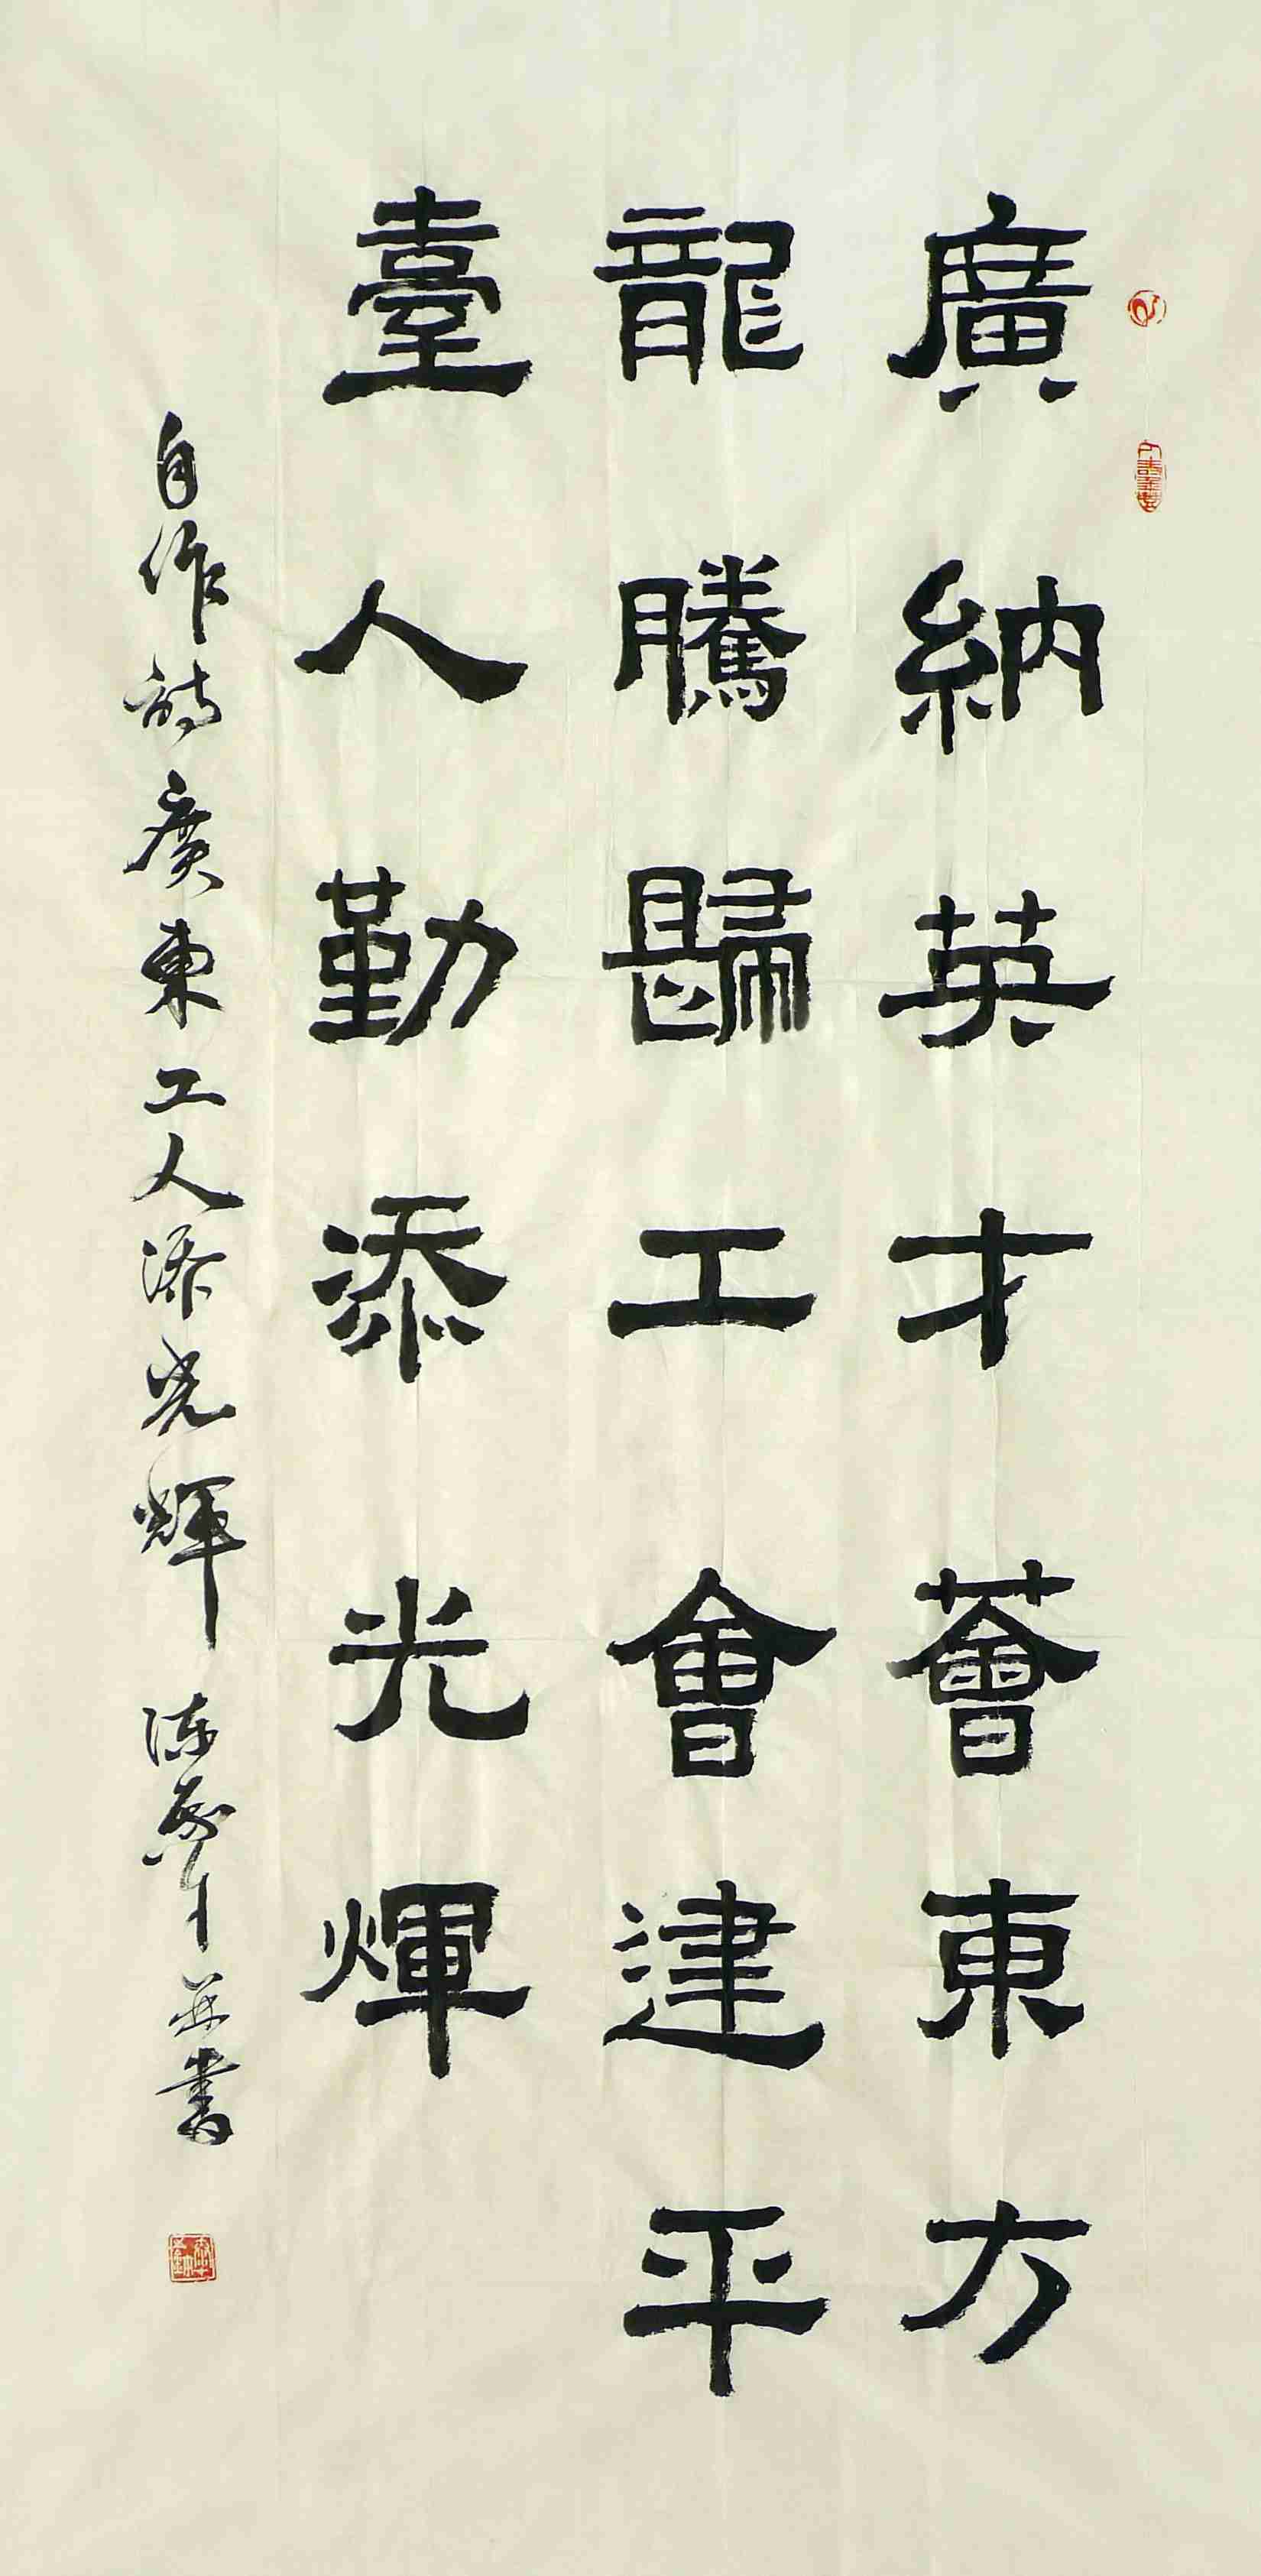 廣納英才薈東方
龍騰歸工會建平
臺人勤添光煇
自作詩廣東工人添光輝 陳 并書